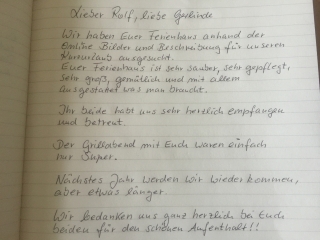 Lieber Rolf, liebe Gerlinde
Wir haben Euer Ferienhaus anhand der
Online Bilder und Beschreibung für unseren
Kurzurlaub ausgesucht.
Euer Ferienhaus ist sehr sauber, sehr gepflegt,
sehr groß, gemütlich und mit allem
Ausgestatet was man braucht.
Ihr beide habt uns sehr herzlich empfangen
und betreut.
Der Grillabend mit Euch waren einfach
nur Super.
Nächstes Jahr werden wir wieder kommen,
aber etwas länger.
Wir bedanken uns ganz herzlich bei Euch
beiden für den schönen Aufenthalt!!